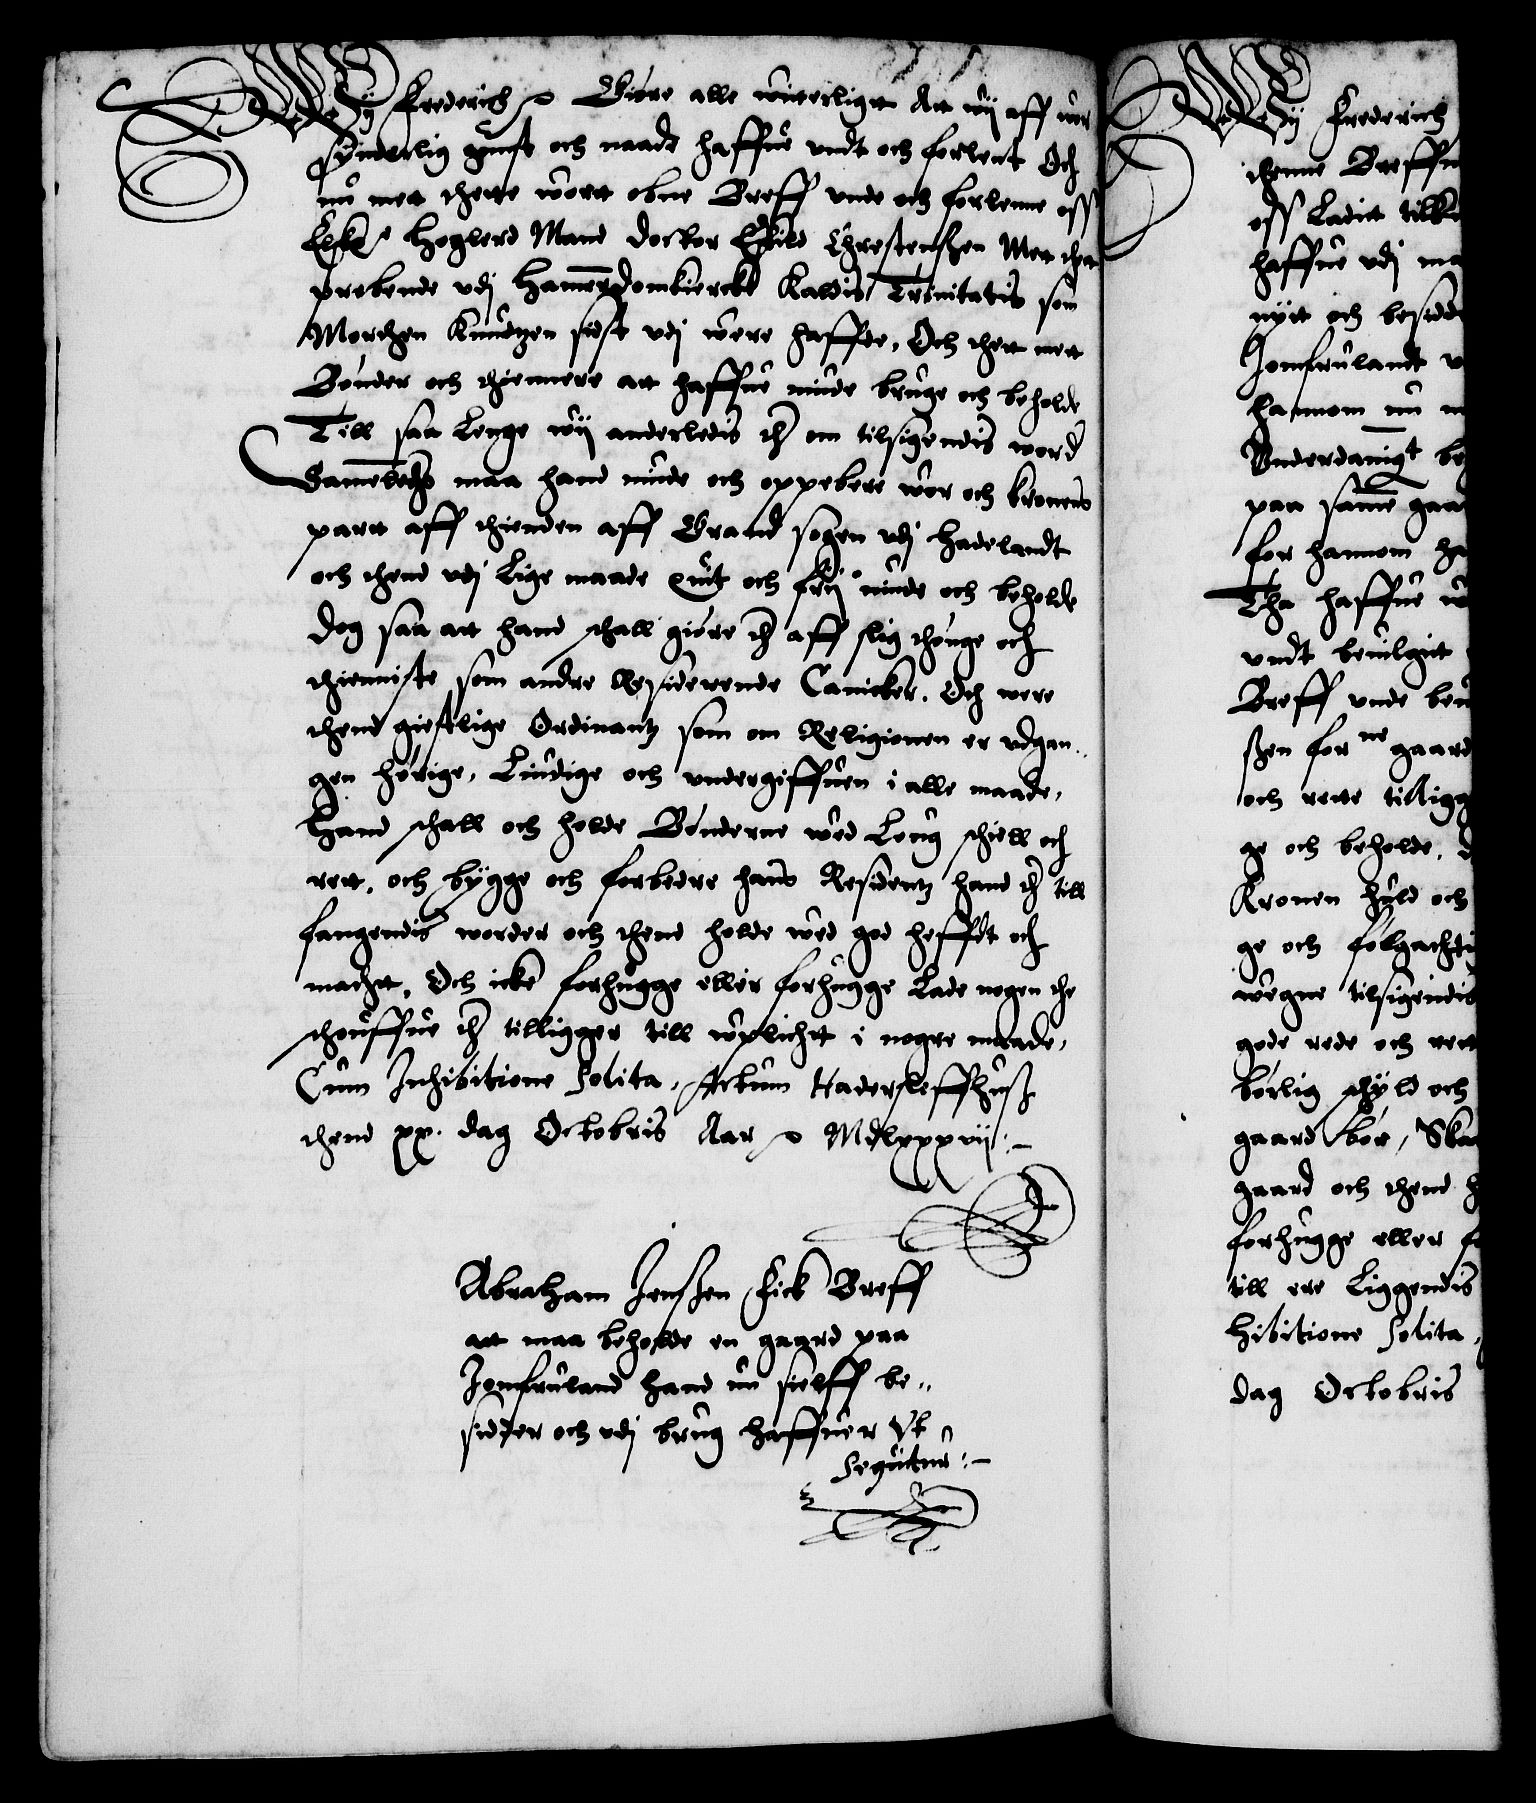 Wy Frederich etc Giøre alle witterligtt Att wij aff wor
synderlig gunst och naade haffue vndt och forlent Och
nu mett thette wortt obne Breff vnde och forlenne oss
Elskel høglerd Mand Doctor Eskild Chrestenßen Mett thet
prebende vdj Hamerdomkiercke Kaldis Trinitatis som
Morthen Knudtzen sidst vdj were haffde, Och thett mett
Bønder och thiennere att haffue niude bruge och beholde
Till saa lenge wij anderledis ther om tilsigendis word
Samelledis maa hand niude och oppebere wor och Kronens
partt aff thienden aff Grand sogen vdj Hadelandt
och thend vdj Lige maade quit och frij niude och beholde
Dog saa att hand schall giøre ther aff slig thonge och
thienniste som andre Residerende Canicker. Och were
thend giestlige Ordinantz som om Religionen er vdgan..
gen hørige, Liudige och vndergiffuen i alle maade,
Hand schall och holde Bønderne wed Loug schiell och
rett, och bygge och forbedre hans Residentz hand ther till
fangendis worder och thend holde wed god heffdt och
machtt, Och icke forhugge eller forhugge Lade nogen the
schouffue ther tilligger till wplichtt i nogre maade,
Cum Inhibitione Solita, Actum Hadersleffhuß
thend xx. dag Octobris Aar etc Mdlxxxvij:-
Abraham Jenßen Fick Breff
att maa beholde en gaard paa
Jomfruland hand nu sielff be..
sidder och vdj brug haffuer Vt
Sequitur:-
Wy Frederich
thenne Breffu
oss Ladit tilke
haffue vdj ma
nytt och besidd
Jomfrulandt v
hannom nu m
Vnderdanigt be
paa same gaa
for hannom ha
Tha haffue w
vndt beuilgit
Breff vnde beu
ßen for ne gaard
och rette tilligg
ge och beholde, d
Kronen huld och
ge och følgachti
wegne tilsigendis
gode rede och rett
børlig schyld och
gaard bør, Ska
gaard och thend h
forhugge eller fo
till ere Liggendis
hibitione Solita,
dag Octobris